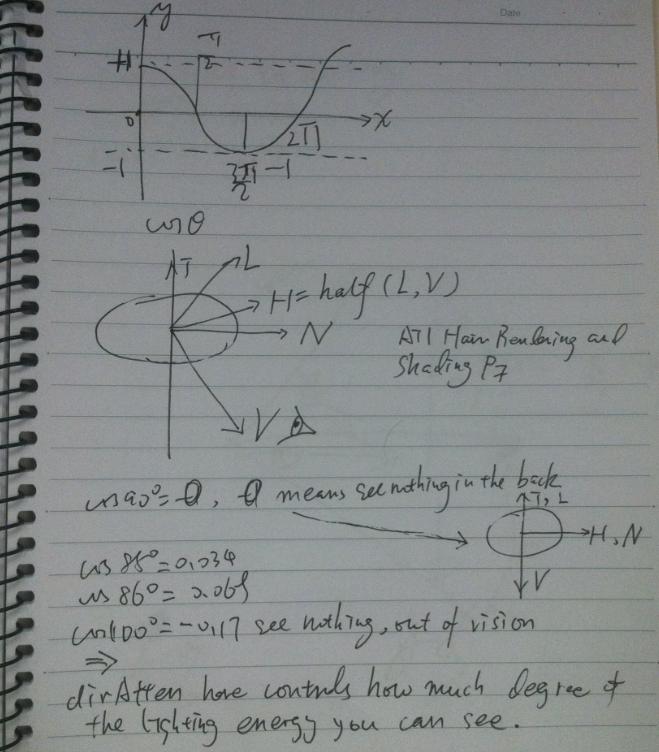 Date
y
π/2
+1
0
x
2π
-1
3π/2 -1
cos θ
T
L
H = half (L, V)
N
ATI Hair Rendering and
Shading P7
V
cos 90° = 0, 0 means see nothing in the back
T, L
H, N
V
cos 88° = 0.034
cos 86° = 0.069
cos 100° = -0.17 see nothing, out of vision
⇒
dirAtten here controls how much degree of
the lighting energy you can see.